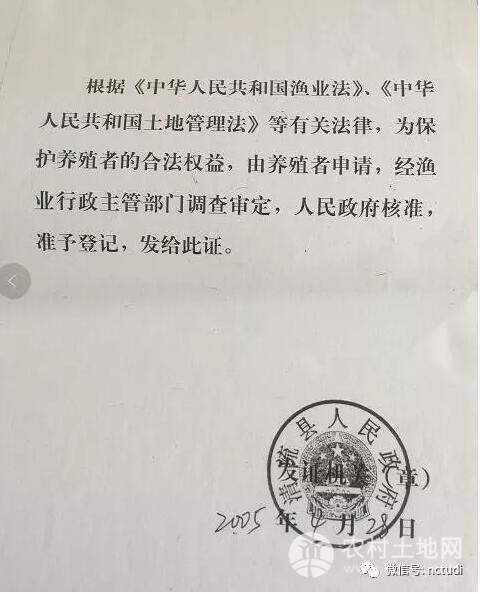 根据《中华人民共和国渔业法》、《中华
人民共和国土地管理法》等有关法律，为保
护养殖者的合法权益，由养殖者申请，经渔
业行政主管部门调查审定，人民政府核准，
准予登记，发给此证。
清流县人民政府
发证机关（章）
2005 年 4 月 28 日
农村土地网
微信号: nctudi